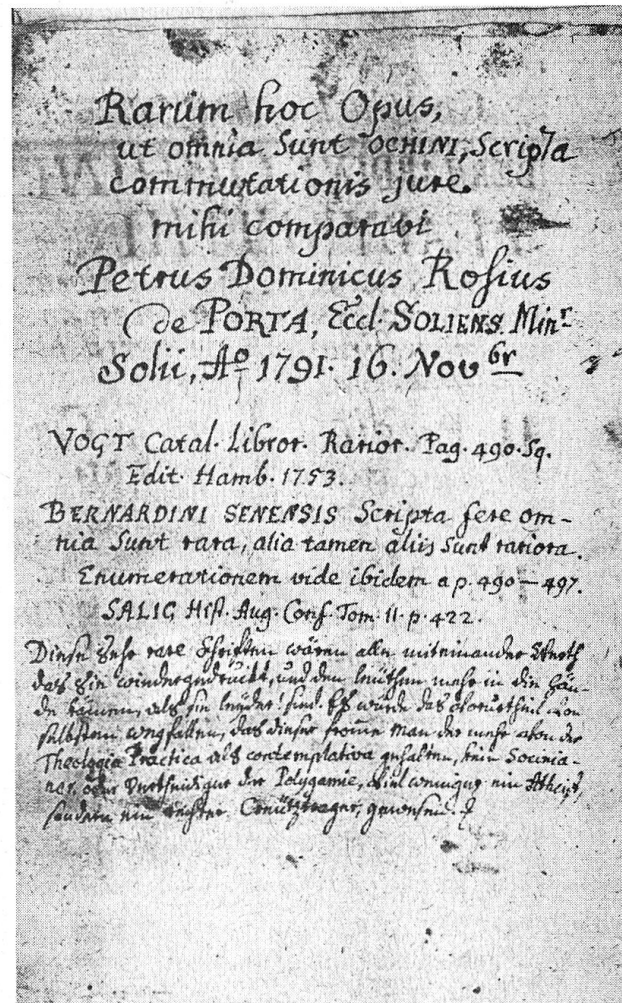 Rarum hoc Opus,
ut omnia sunt OCHINI, Scripta
commutationis jure.
mihi comparavi
Petrus Dominicus Rosius
de PORTA, Eccl. SOLIENS. Minr.
Solii, Ao 1791. 16. Nov br
VOGT Catal. Libror. Rarior. Pag. 490. Sq.
Edit. Hamb. 1753.
BERNARDINI SENENSIS Scripta fere om-
nia sunt rara, alia tamen aliis sunt rariora.
Enumerationem vide ibidem a p. 490 – 497.
SALIG Hist. Aug. Conf. Tom. II. p. 422.
Diese sehr rare Schriften wären alle miteinander Werth
das sie wiedergedruckt, und den leuthen mehr in die Hän-
de kämen, als sie leyder! sind. Es wurde das Vorurtheil von
selbsten wegfallen, das dieser fromme Man der mehr von der
Theologia Practica als contemplativa gehalten, kein Socinia-
ner, oder Vertheidiger der Polygamie, viel weniger ein Atheist,
sondern ein rechter Creützträger, gewesen.